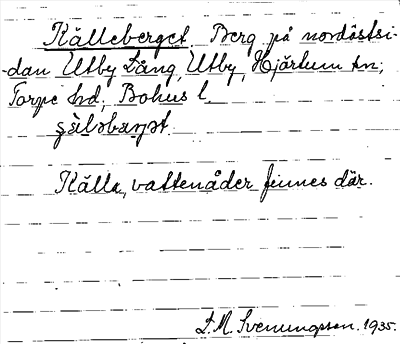 Källeberget. Berg på nordöstsi-
dan Utby Lång, Utby, Hjärtum sn;
Torpe hd, Bohus l.
Källa, vattenåder finnes där.
L. M. Svenungsson. 1935.